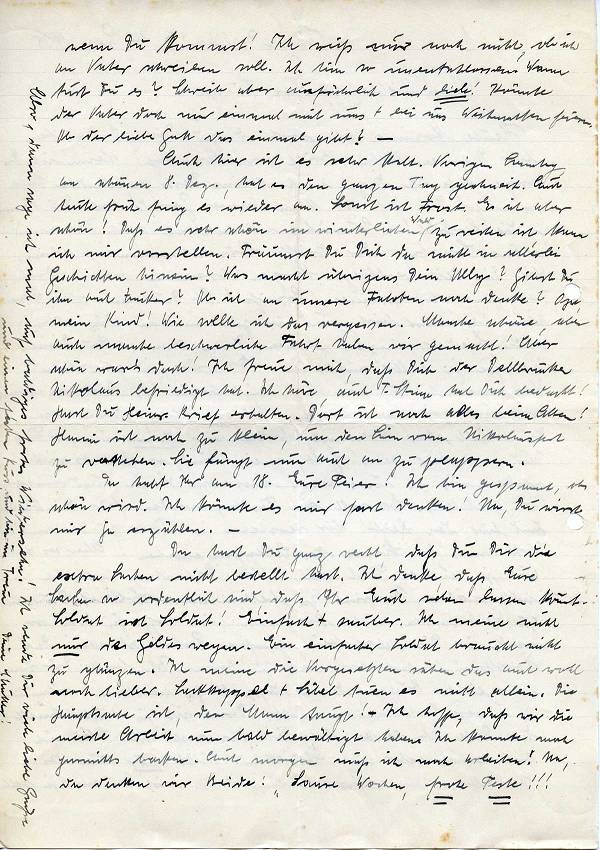 wenn Du kommst! Ich weiß nur noch nicht, ob ich
an Vater schreiben soll. Ich bin so unentschlossen! Wann
tust Du es? Schreibe aber ausführlich und lieb! Könnte
der Vater doch nur einmal mit uns + bei uns Weihnachten feiern.
Ob der liebe Gott das einmal gibt! –
Auch hier ist es sehr kalt. Vorigen Sonntag,
am schönen 8. Dez. hat es den ganzen Tag geschneit. Auch
heute früh fing es wieder an. Sonst ist Frost. Es ist aber
schön! Daß es sehr schön im winterlichen zu reiten ist kann
ich mir vorstellen. Träumst Du Dich da nicht in allerlei
Geschichten hinein? Was macht übrigens Dein ? Gibst Du
ihm auch Zucker? Ob ich an unsere Fahrten noch denke?
mein Kind! Wie sollte ich das vergessen. Manche schöne, aber
auch manche beschwerliche Fahrt haben wir gemacht! Aber
schön wars doch! Ich freue mich, daß Dich der
Nikolaus befriedigt hat. Ich höre, auch T. hat Dich bedacht!
Hast Du Heinr. Brief erhalten. Dort ist noch alles beim Alten!
ist noch zu klein, um den Sinn vom Nikolausfest
zu verstehen. Sie fängt nun auch an zu plappern.
Da habt Ihr am 18. Eure Feier! Ich bin gespannt, obs
schön wird. Ich könnte es mir fast denken! Na, Du wirst
mir ja erzählen. –
Da hast Du ganz recht daß Du Dir die
extra Sachen nicht bestellt hast. Ich denke daß Eure
Sachen so ordentlich sind, daß Ihr Euch sehen lassen könnt.
Soldat ist Soldat! Einfach + sauber. Ich meine nicht
nur des Geldes wegen. Ein einfacher Soldat braucht nicht
zu glänzen. Ich meine die Vorgesetzten sähen das auch wohl
auch lieber. + Säbel tuen es nicht allein. Die
Hauptsache ist, der Mann taugt! – Ich hoffe, daß wir die
meiste Arbeit nun bald bewältigt haben. Ich konnte noch
backen. Auch morgen muß ich noch arbeiten! Na,
da denken wir Beide: „Saure Wochen, frohe Feste!!!
Aber, dann sage ich mal, auf baldiges frohes Wiedersehen! Ich sende Dir viele liebe Grüße
und einen Kuß und bin in Treue Deine Mutter!